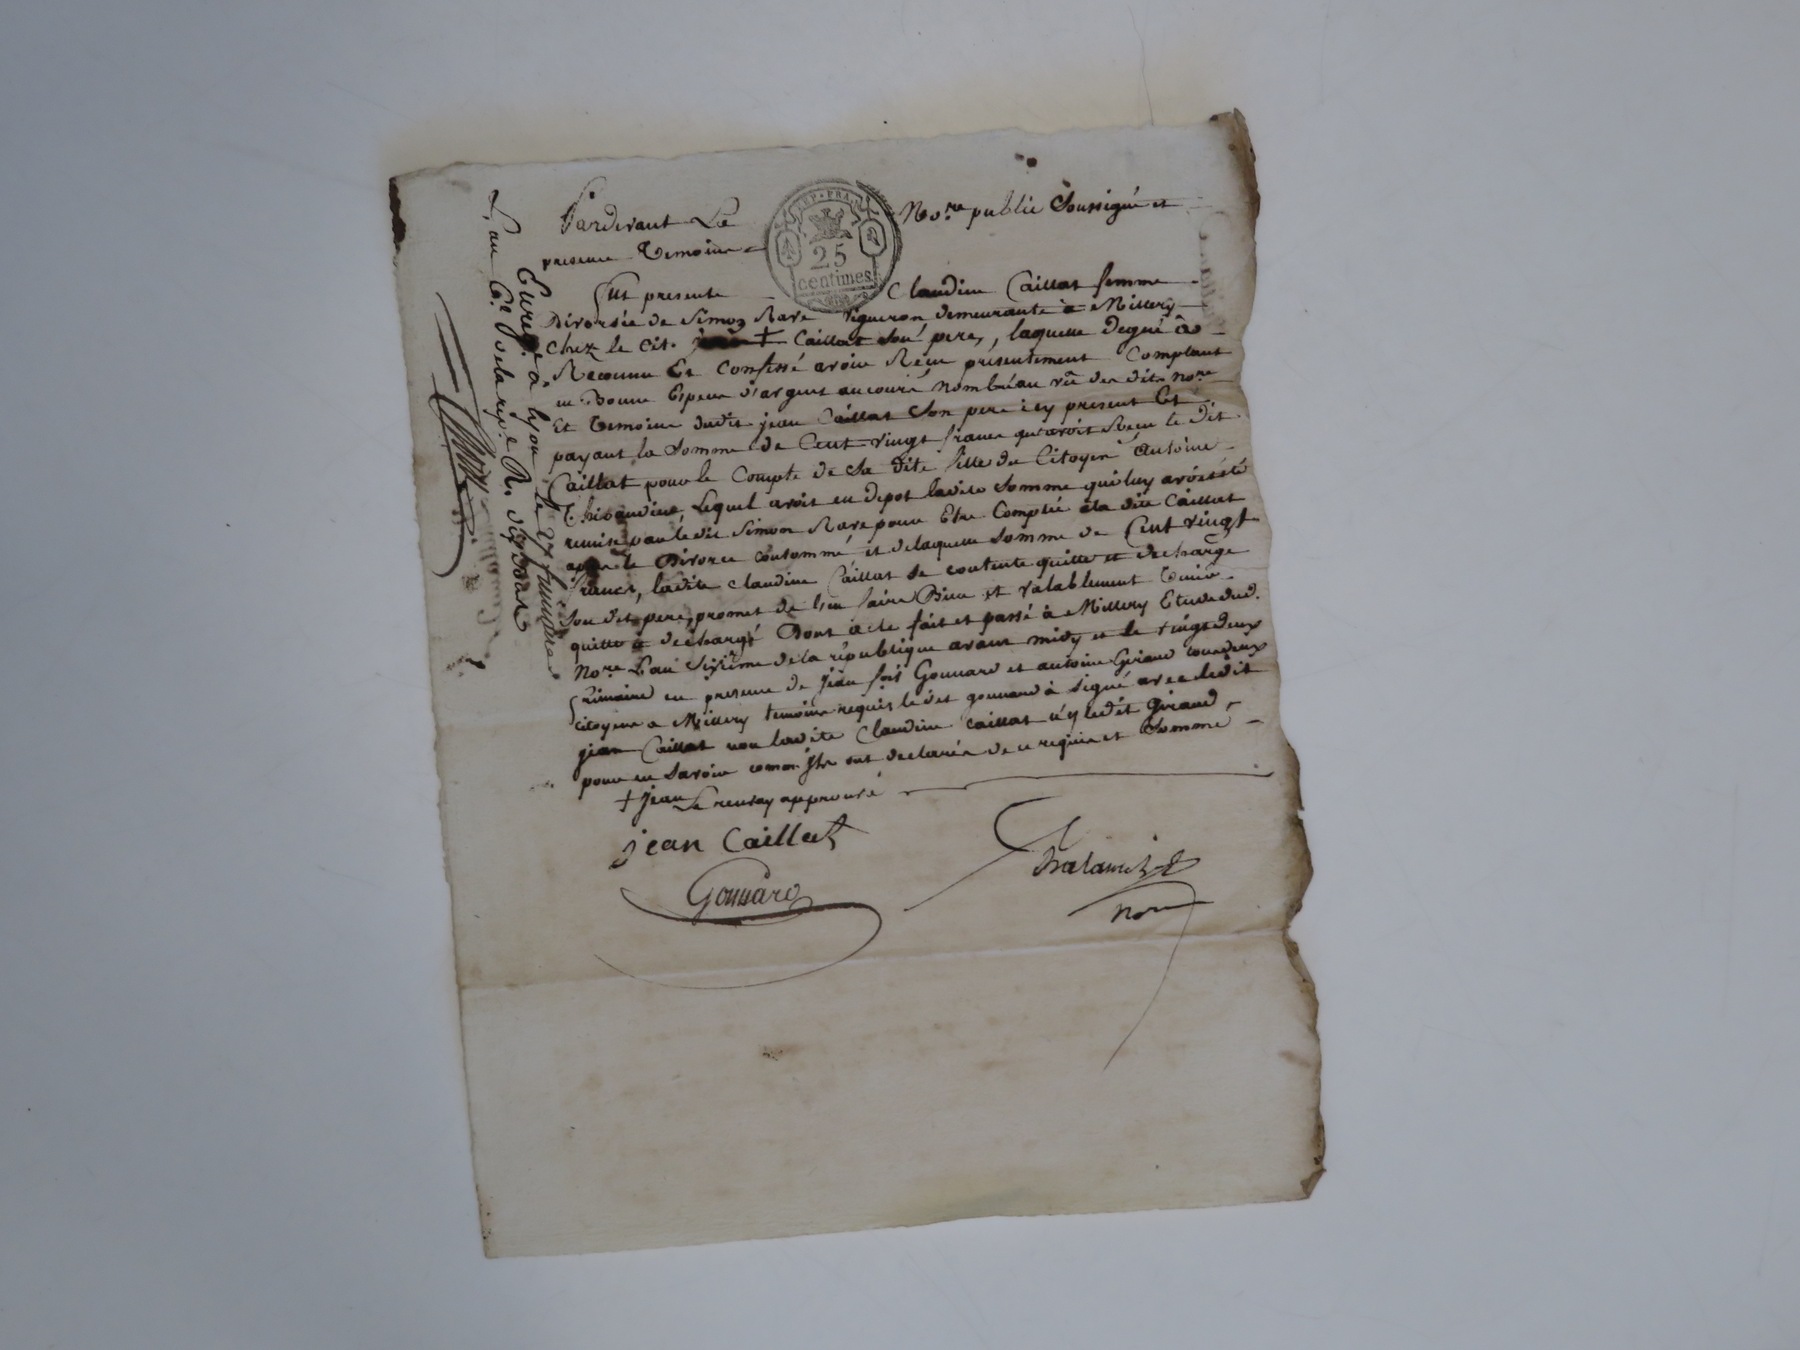 Pardevant Le Nore public Soussigné et
presence Temoins
REP. FRA.
25
centimes
fut presente Claudine Caillat femme
Divorsée de Simon Rave vigneron demeurante à Millery
chez le cit. + Caillat son pere, laquelle degré à
Reconnu Et Confessé avoir Reçu présentement Comptant
en Bonne Espece d'argent au cours nombré au vû des dits nore
Et temoins dudit jean Caillat Son pere icy present Et
payant la Somme de Cent vingt francs qu'avoit Reçu le dit
Caillat pour le Compte de Sa dite fille du Citoyen Antoine
Thibaudier, Lequel avoit en depot ladite Somme qui luy avoit été
remise par le dit Simon Rave pour Etre Comptée à la dite Caillat
après le Divorce consommé et de laquelle Somme de Cent vingt
francs, ladite Claudine Caillat se contente quitte et decharge
Son dit pere, promet de l'en faire Bien et valablement tenir
quitte et dechargé Dont acte fait et passé à Millery Etude dud.
Nore L'an Sixième de la république avant midy et le vingt deux
frimaire en presence de jean fois Gonnard et antoine Giraud tous deux
citoyens à Millery temoins requis le dit gonnard à signé avec ledit
jean Caillat non ladite Claudine Caillat n'y ledit Giraud
pour ne Savoir comme ils ont declarés de ce requis et Sommé
+ jean Le renvoy approuvé
jean Caillat
Gonnard
nore
Enregt. à lyon le 27 frimaire
L'an 6e de la repe. R.